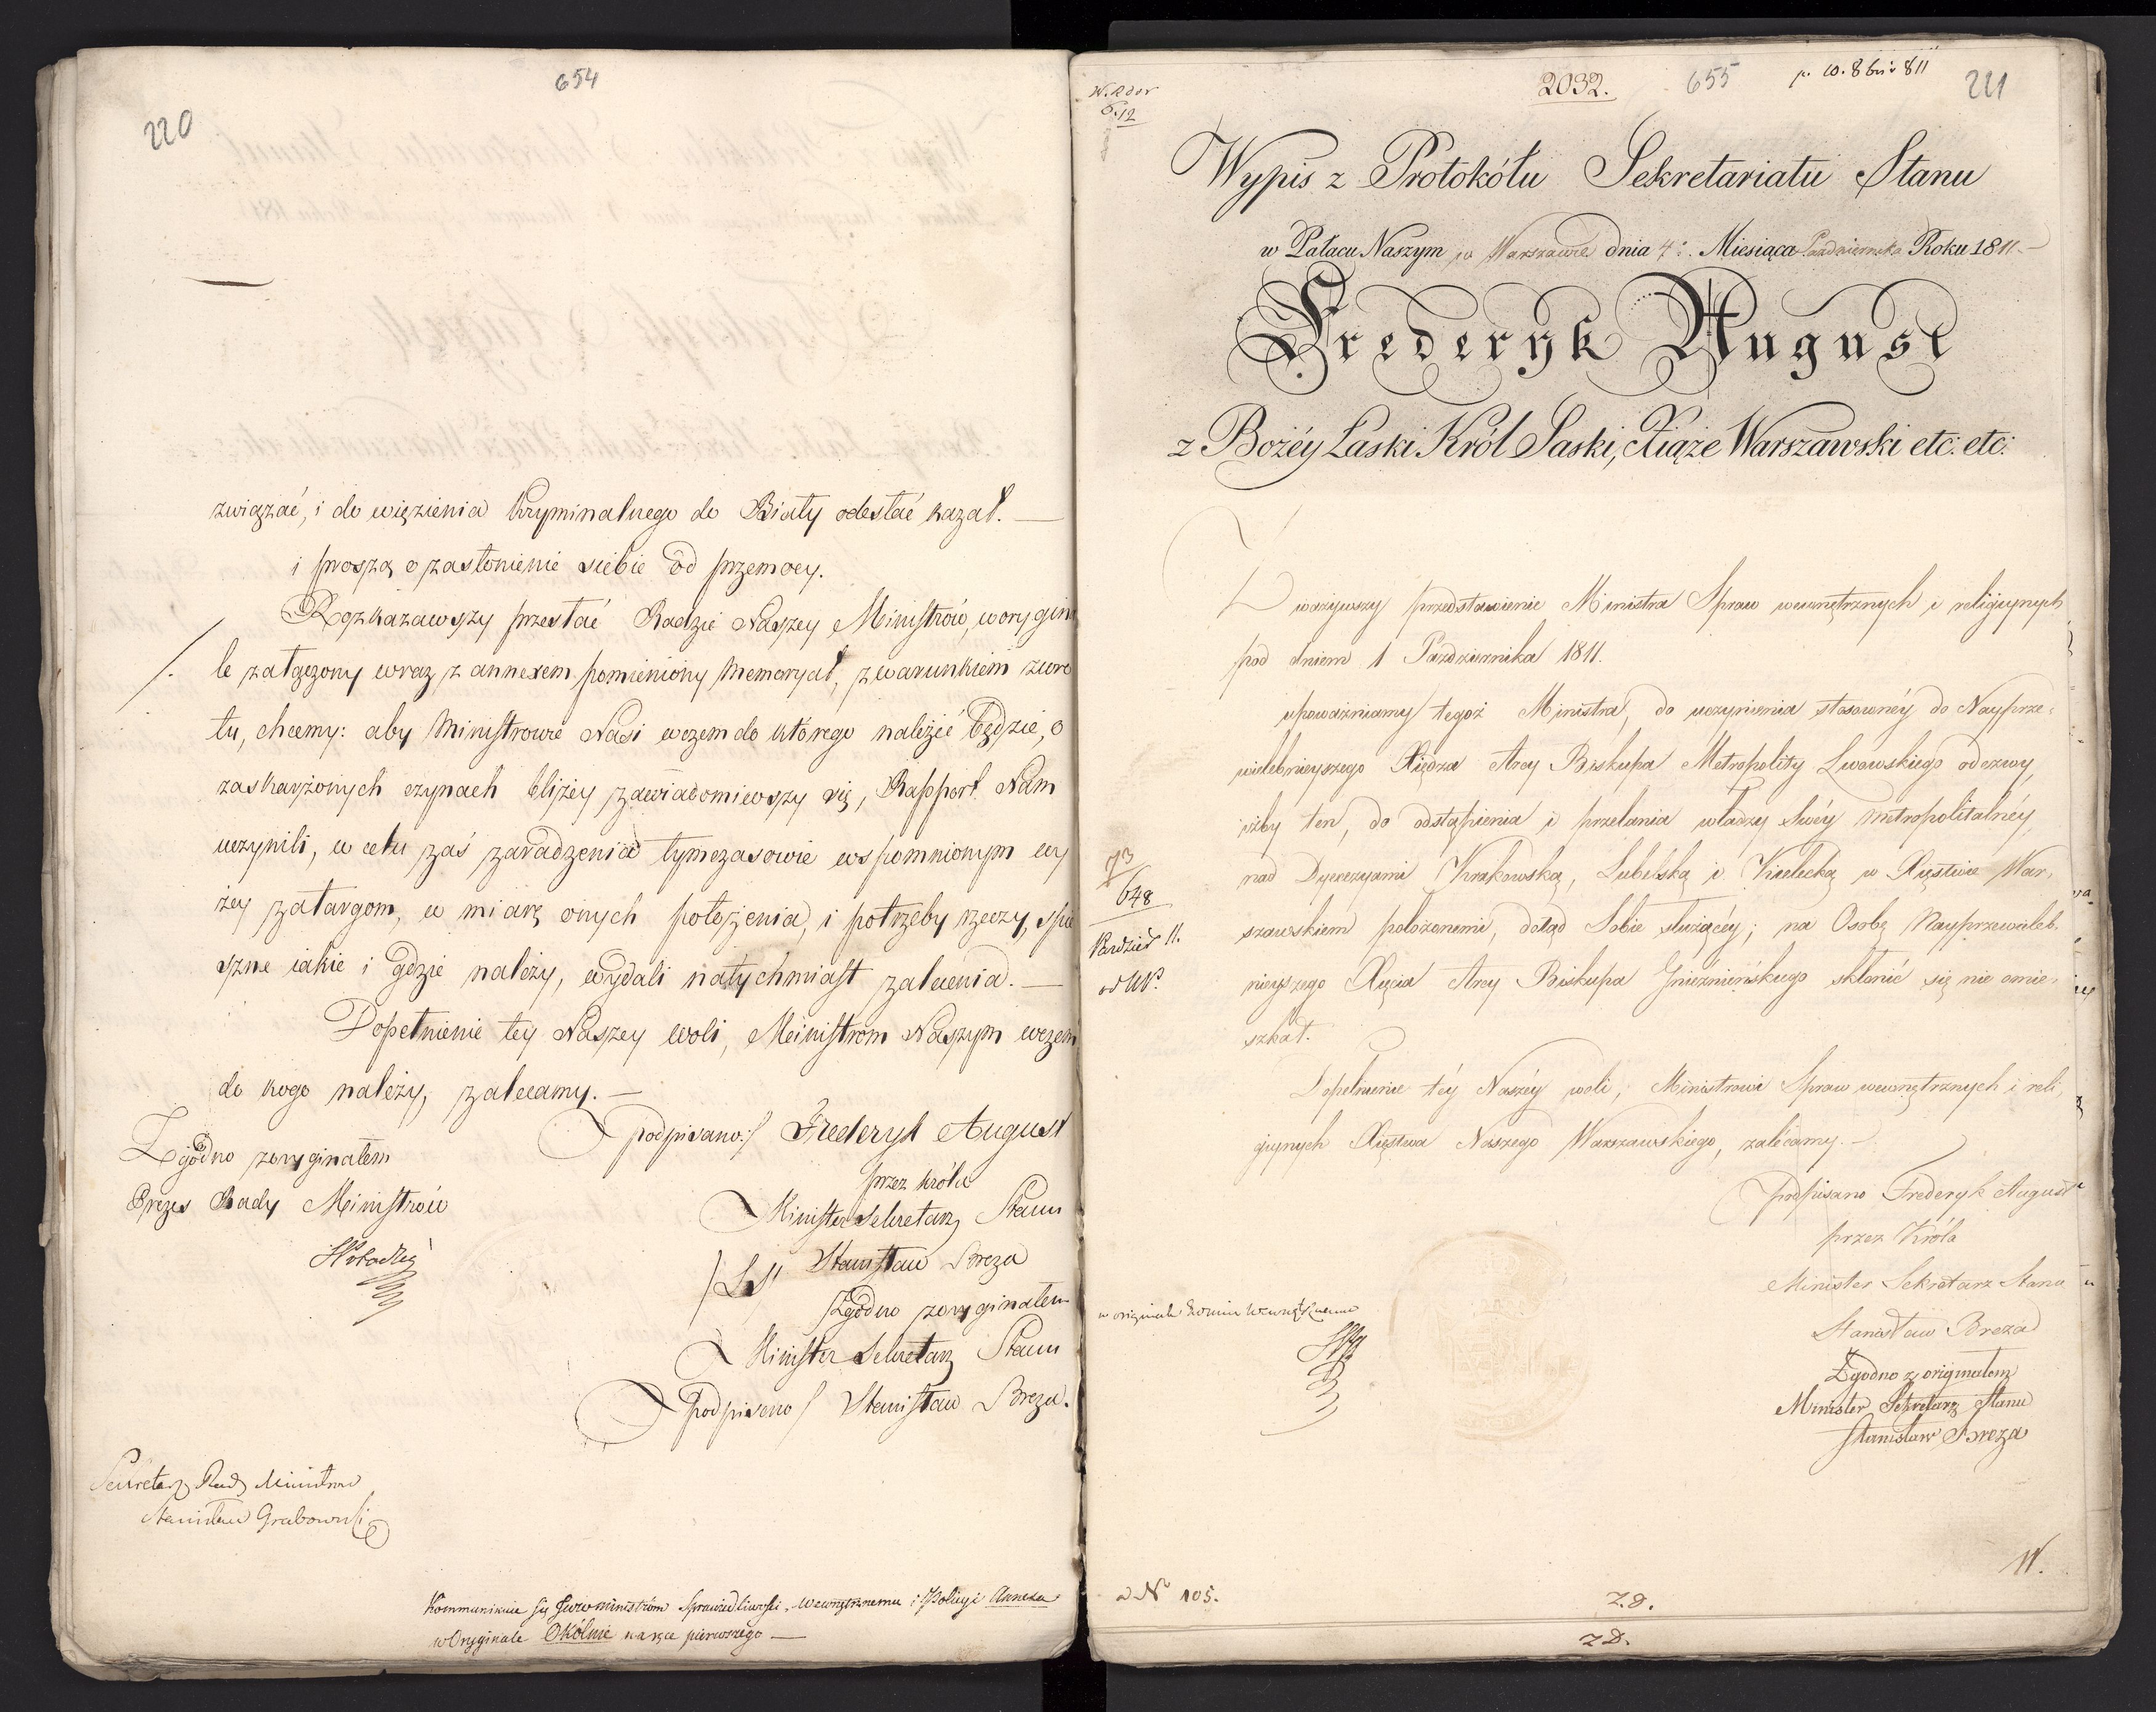 654
220
związać, i do więzienia kryminalnego do Biały odesłać kazał. —
i proszą o zasłonienie siebie od przemocy.
Rozkazawszy przesłać Radzie Naszey Ministrów, w orygina
le załączony wraz z annexem pomieniony memoryał, z warunkiem zwro
tu, chcemy: aby Ministrowie Nasi w czem do którego należeć będzie, o
zaskarżonych czynach bliżey zawiadomiewszy się, Rapport Nam
uczynili, w celu zaś zaradzenia tymczasowie wspomnionym wy
żey zatargom, w miarę onych położenia, i potrzeby rzeczy, spie
szne iakie i gdzie należy, wydali natychmiast zalecenia. —
Dopełnienie tey Naszey woli, Ministrom Naszym w czem
do kogo należy, zalecamy. —
podpisano:/ Frederyk August
przez króla
Minister Sekretarz Stanu
/LS/ Stanisław Breza
Zgodno z oryginałem
Minister Sekretarz Stanu
podpisano/ Stanisław Breza.
Zgodno z oryginałem
Prezes Rady Ministrów
Sekretarz Rady Ministrów
Stanisław Grabowski
Kommunikuie się JWW Ministrom Sprawiedliwości, Wewnętrznemu i Policyi Annexa
w Oryginale Okólnie na ręce pierwszego —
2032.
655
p. 10. 8bris 811
221
6.12
Wypis z Protokółu Sekretariatu Stanu
w Pałacu Naszym w Warszawie dnia 4. Miesiąca Pazdziernika Roku 1811 —
Frederyk August
z Bożéy Łaski Król Saski, Xiąże Warszawski etc: etc:
Zważywszy przedstawienie Ministra Spraw wewnętrznych i religiynych
pod dniem 1 Pazdziernika 1811.
upoważniamy tegoż Ministra, do uczynienia stosownéy do Nayprze-
wielebnieyszego Xiędza Arcy Biskupa Metropolity Lwowskiego odezwy,
iżby ten, do odstąpienia i przelania władzy swéy metropolitalnéy,
nad Dyecezyami Krakowską, Lubelską i Kielecką w Xięstwie War-
szawskiem położonemi, dotąd Sobie służącéy; na Osobę Nayprzewieleb-
nieyszego Xięcia Arcy Biskupa Gnieźnieńskiego skłonić się nie omie-
szkał.
Dopełnienie téy Naszéy woli, Ministrowi Spraw wewnętrznych i reli-
giynych Xięstwa Naszego Warszawskiego, zalécamy. —
podpisano Frederyk August
przez Króla
Minister Sekretarz Stanu
Stanisław Breza
Zgodno z originałem
Minister Sekretarz Stanu
Stanisław Breza
73
648
Pazdzier 11.
w originale
W.
N° 105.
Z.D.
ZD.